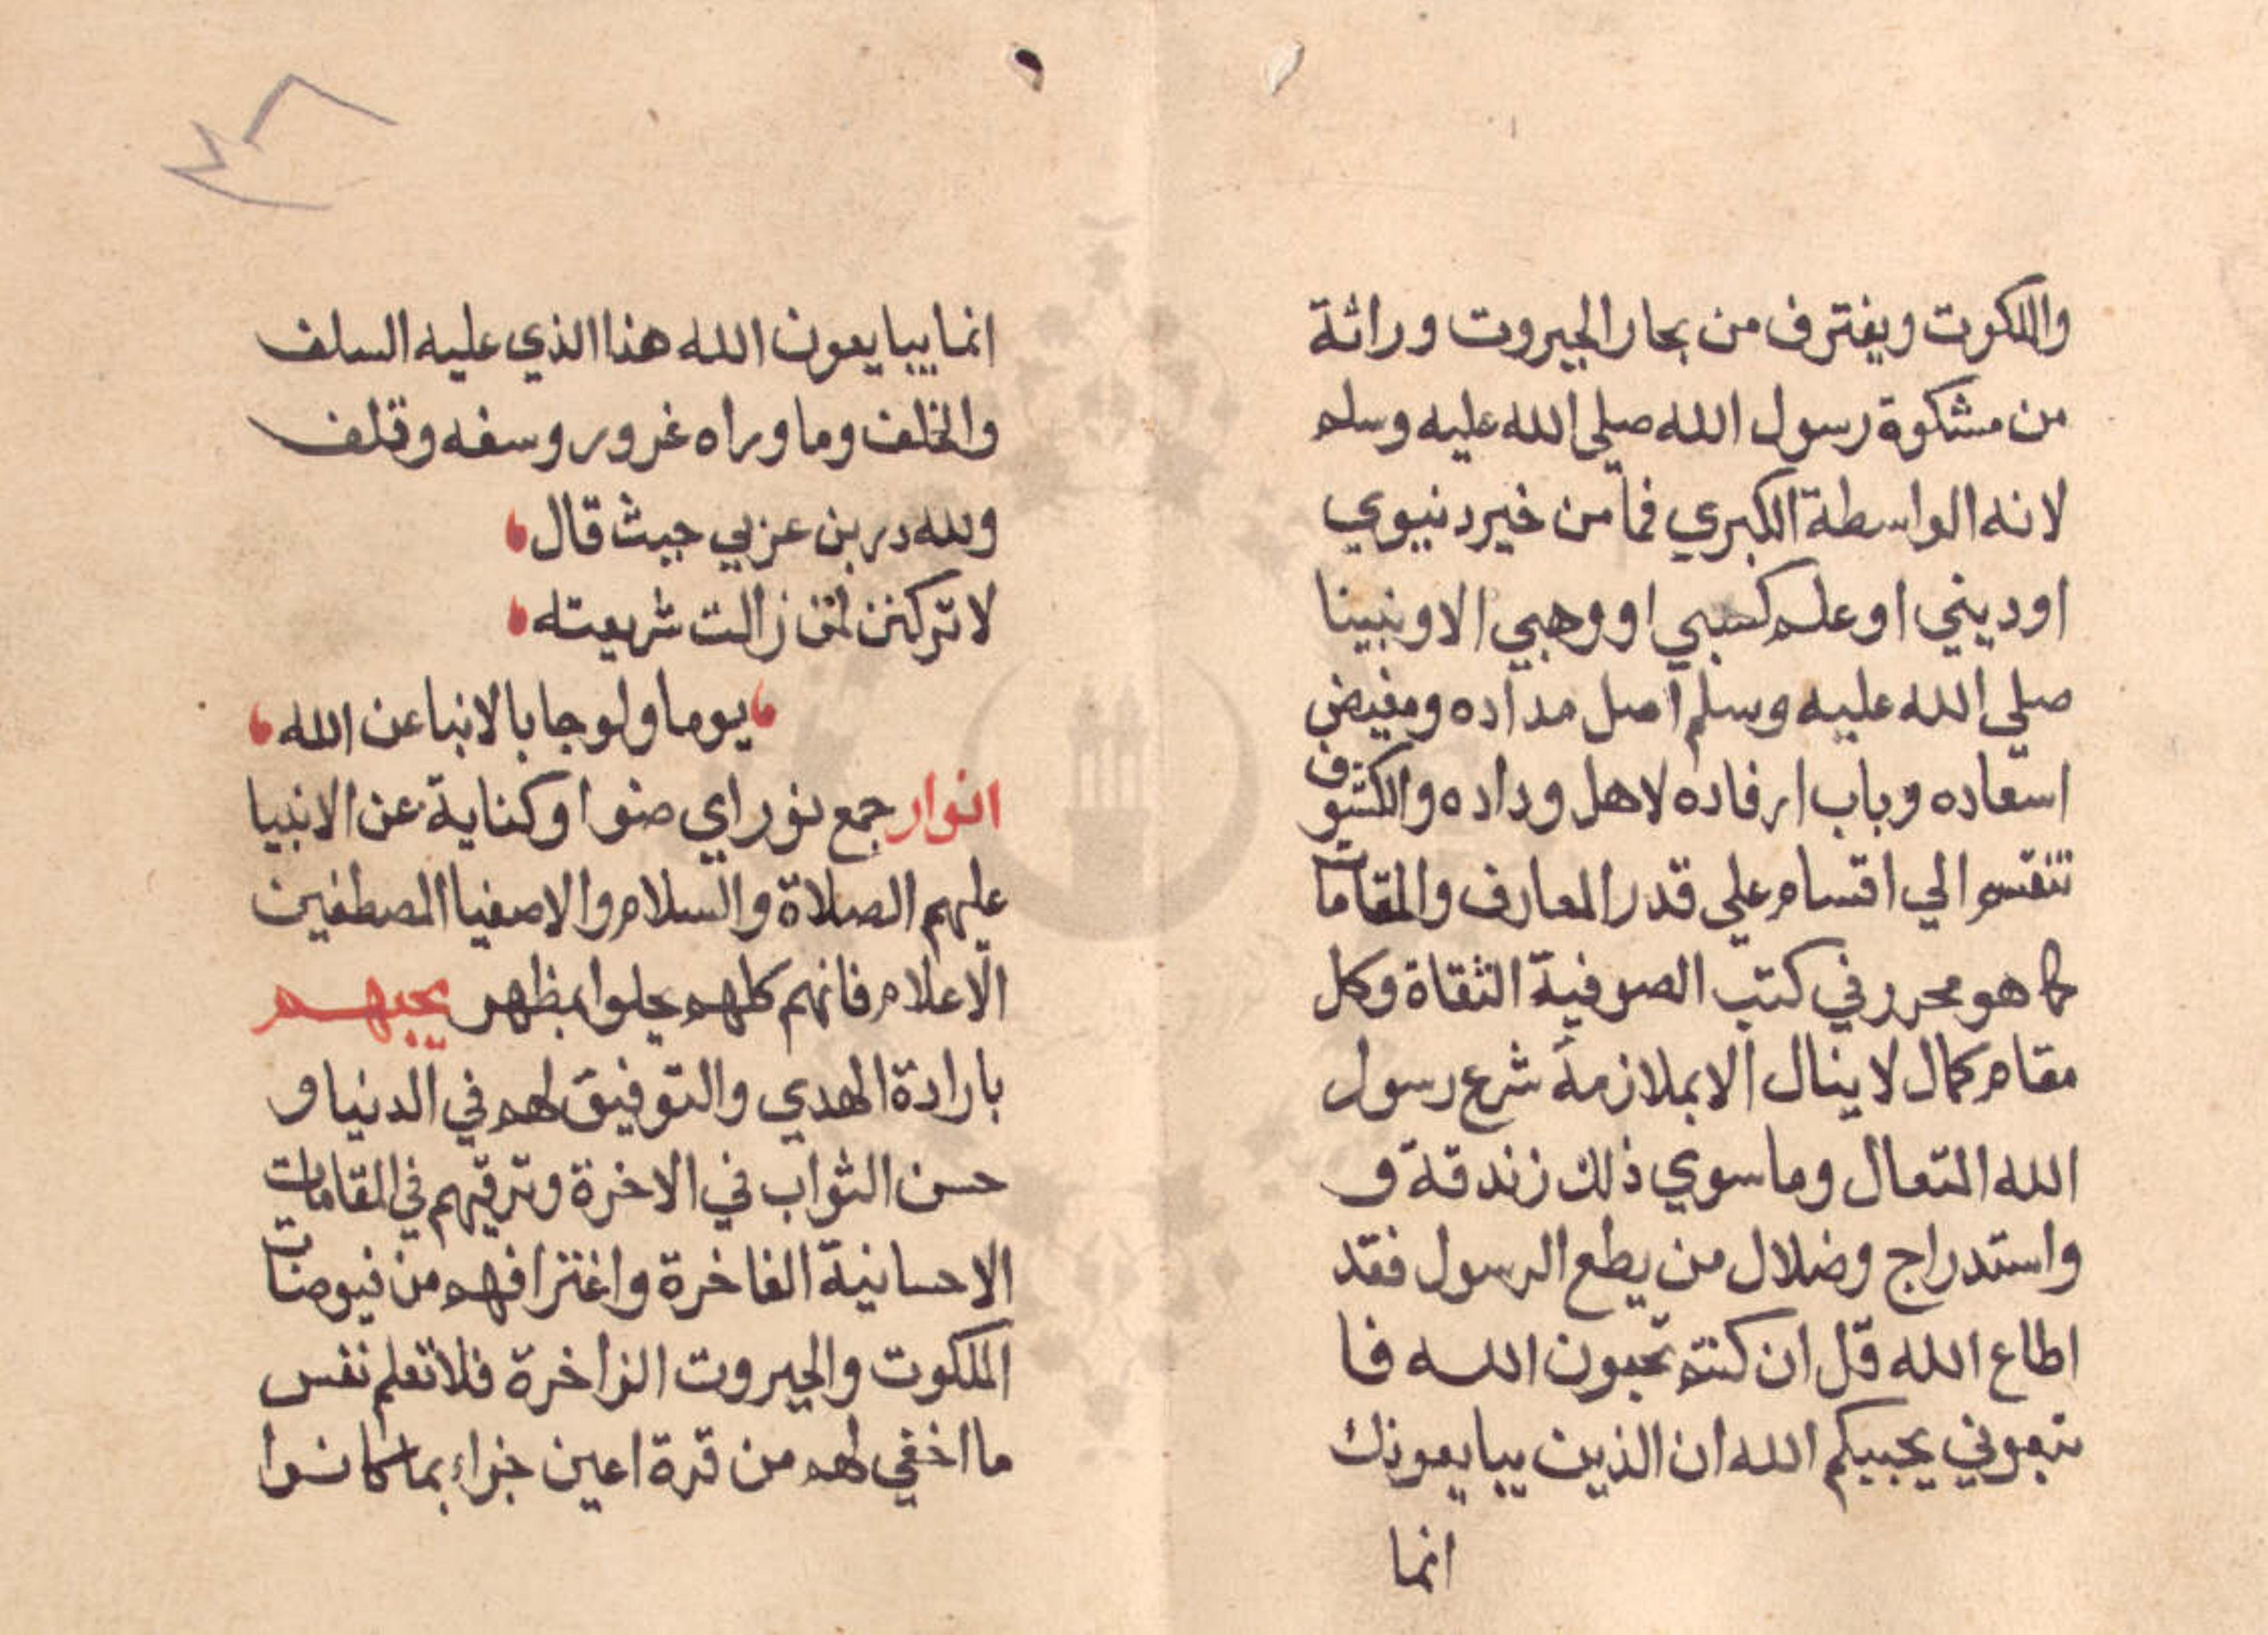 والملكوت ويغترف من بحار الجبروت وراثة
من مشكوة رسول الله صلي الله عليه وسلم
لانه الواسطة الكبري فما من خير دنيوي
او ديني او علم كسبي او وهبي الا ونبينا
صلي الله عليه وسلم اصل مداده ومفيض
اسعاده وباب ارفاده لاهل وداده والكشوف
تنقسم الي اقسام علي قدر المعارف والمقامات
كما هو محرر في كتب الصوفية الثقاة وكل
مقام كمال لا ينال الا بملازمة شرع رسول
الله المتعال وما سوي ذلك زندقة و
واستدراج وضلال من يطع الرسول فقد
اطاع الله قل ان كنتم تحبون الله فا
تبعوني يحببكم الله ان الذين يبايعونك
انما
انما يبايعون الله هذا الذي عليه السلف
والخلف وما وراه غرور وسفه وقلف
ولله در بن عربي حيث قال
لا تركنن لمن زالت شريعته
يوما ولو جا بالانبا عن الله
انوار جمع نور اي ضوا وكناية عن الانبيا
عليهم الصلاة والسلام والاصفيا المصطفين
الاعلام فانهم كلهم جلوا بمظهر يحبهم
بارادة الهدي والتوفيق لهم في الدنيا و
حسن الثواب في الاخرة وترقيهم في المقامات
الاحسانية الفاخرة واغترافهم من فيوضات
الملكوت والجبروت الزاخرة فلا تعلم نفس
ما اخفي لهم من قرة اعين جزاء بما كانوا